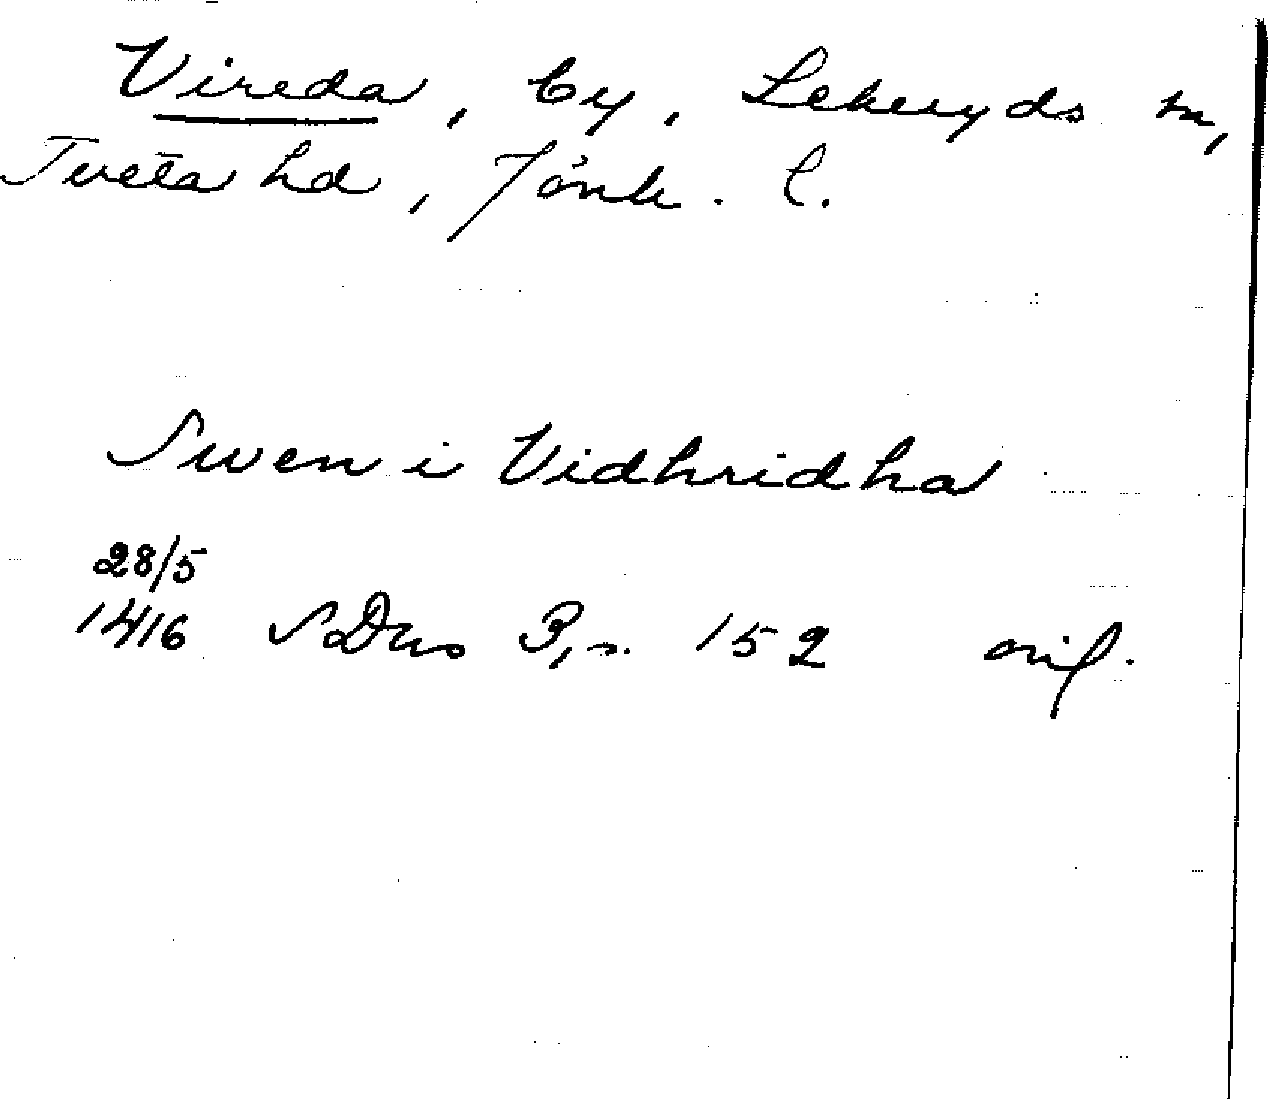 Vireda, by, Lekeryds sn,
Tveta hd, Jönk. l.
Swen i Vidhridha
28/5
1416 SDns 3, s. 152 orig.